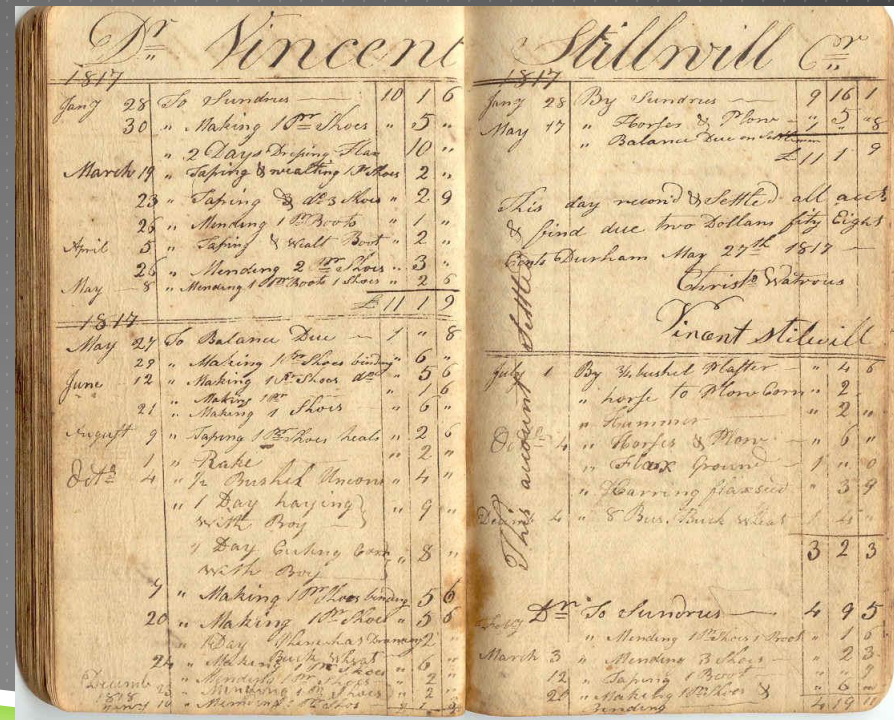 Dr Vincent
1817
Jany 28 To Sundries 10 1 6
30 " Making 1 Pr Shoes " 5 "
" 2 Days Dresing Flax 10 "
March 19 " Taping & wealting 1 Pr Shoes 2 "
23 " Taping & do 3 Shoes " 2 9
26 " Mending 1 Pr Boots " 1 "
April 5 " Taping & Wealt Boot " 2 "
26 " Mending 2 pr Shoes " 3 "
May 8 " Mending 1 Pr Boots 1 Shoes 2 6
£ 11 1 9
1817
May 27 To Balance Due 1 " 8
29 " Making 1 Pr Shoes binding " 6 "
June 12 " Making 1 Pr Shoes do " 5 6
" Making 1 Pr " 1 6
21 " Making 1 Shoes " 6 "
August 9 " Taping 1 Pr Shoes heals " 2 6
1 " Rake " 2 "
Octo 4 " 1/2 Bushel " 4 "
" 1 Day haying
With Boy " 9 "
" 1 Day Cuting Corn
With Boy " 8 "
7 " Making 1 Pr Shoes binding 5 6
20 " Making 1 Pr Shoes " 5 6
" 1 Day 2 "
Buck Wheat
24 " Making 1 Pr Shoes " 6 "
" Mending 1 Pr Shoes " 2 "
Decemb " Mending 1 Pr Shoes " 2 "
1818
" Mending
Stillwill Cr
1817
Jany 28 By Sundries 9 16 1
May 17 " Horses & Plow " 5 "
" Balance Due on 8
£ 11 1 9
This day recond & Settled all acts
& find due two Dollars fity Eight
Cents Durham May 27th 1817
Christo Watrous
Vincent Stilwill
This account Settled
July 1 By 3/4 bushel Plaster " 4 6
" horse to Plow Corn " 2 "
" Hammer " 2 "
Octo 4 " Horses & Plow " 6 "
" Flax Ground 1 " 0
" Harring flaxseed " 3 9
Decem 4 " 8 Bus. Buck Wheat 1 4 "
3 2 3
Dr To Sundries 4 9 5
" Mending 1 Pr Shoes 1 Boot " 1 6
March 3 " Mending 3 Shoes " 2 3
12 " Taping 1 Boot " 1 "
21 " Making 1 Pr Shoes & " 6 "
binding 4 19 11